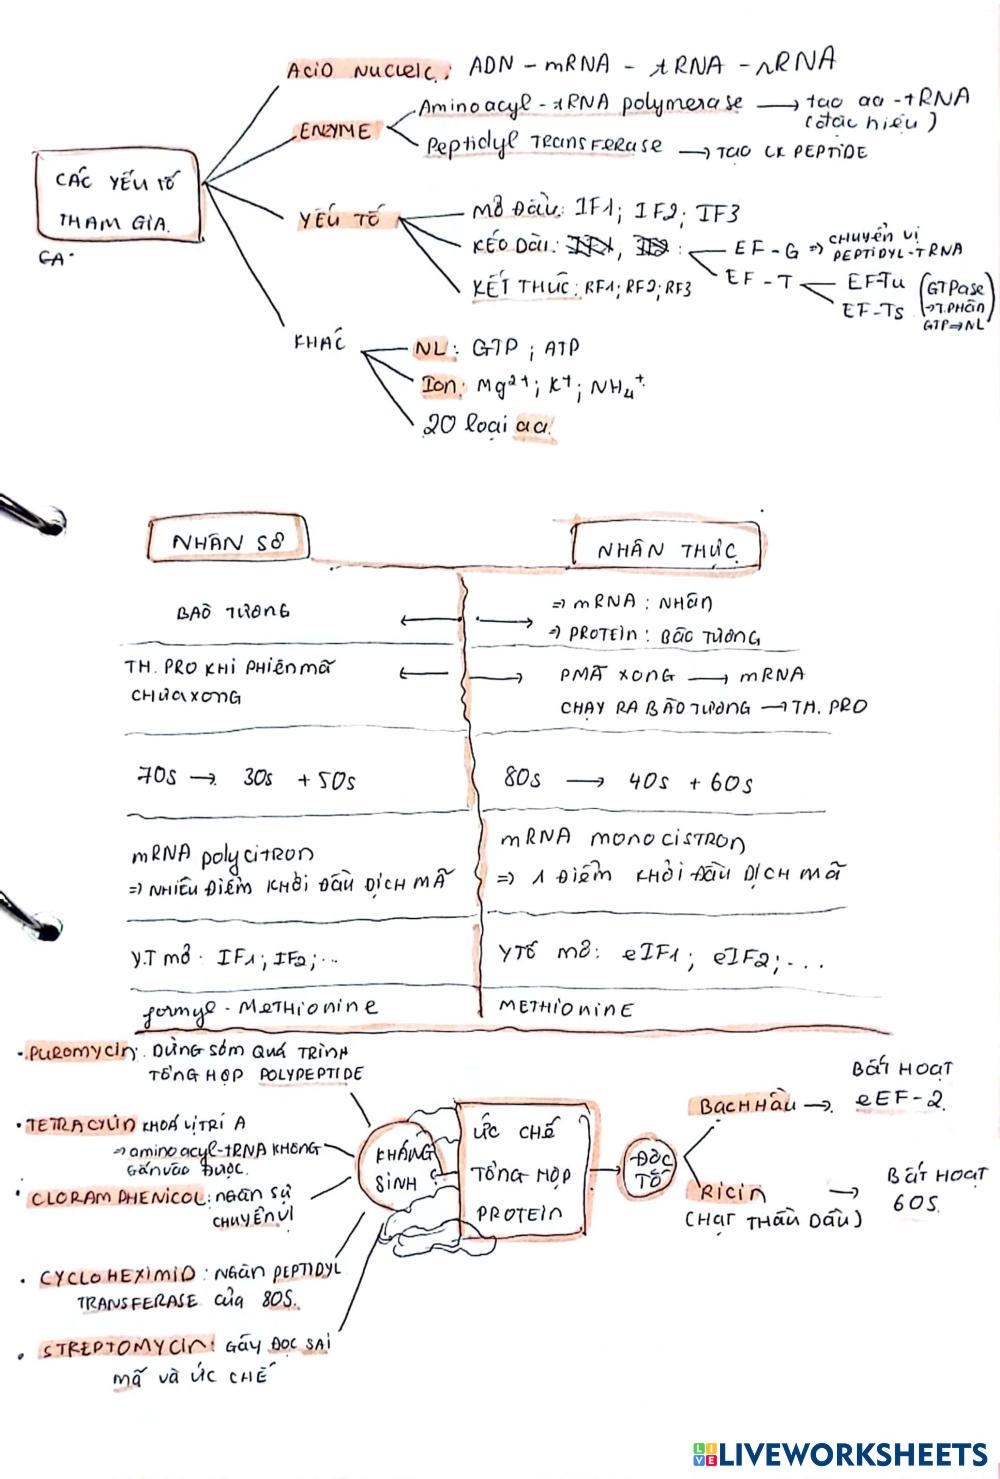 Acid nucleic: ADN - mRNA - tRNA - rRNA
ENZYME
Aminoacyl-tRNA polymerase → tạo aa-tRNA
(đặc hiệu)
Peptidyl TRANSFERASE → TẠO LK PEPTIDE
CÁC YẾU TỐ
THAM GIA.
YẾU TỐ
MỞ ĐẦU: IF1; IF2; IF3
KÉO DÀI: EF-G ⇒ CHUYỂN VỊ
PEPTIDYL-TRNA
EF-T
EF-Tu
EF-Ts
(GTPase
→ T.PHÂN
GTP ⇒ NL)
KẾT THÚC: RF1; RF2; RF3
KHÁC
NL: GTP; ATP
Ion: Mg²⁺; K⁺; NH₄⁺
20 loại aa.
NHÂN SƠ
NHÂN THỰC
BÀO TƯƠNG
⇒ mRNA: NHÂN
⇒ PROTEIN: BÀO TƯƠNG
TH. PRO KHI PHIÊN MÃ
CHƯA XONG
PMÃ XONG → mRNA
CHẠY RA BÀO TƯƠNG → TH. PRO
70s → 30s + 50s
80s → 40s + 60s
mRNA polycitron
⇒ NHIỀU ĐIỂM KHỞI ĐẦU DỊCH MÃ
mRNA monocistron
⇒ 1 ĐIỂM KHỞI ĐẦU DỊCH MÃ
Y.T mở. IF1; IF2;...
Y TỐ mở: eIF1; eIF2;...
formyl - METHIONINE
METHIONINE
• PUROMYCIN: DỪNG SỚM QUÁ TRÌNH
TỔNG HỢP POLYPEPTIDE
• TETRACYLIN KHOÁ VỊ TRÍ A
⇒ aminoacyl-tRNA KHÔNG
GẮN VÀO ĐƯỢC.
• CLORAMPHENICOL: NGĂN SỰ
CHUYỂN VỊ
• CYCLOHEXIMID: NGĂN PEPTIDYL
TRANSFERASE của 80S.
• STREPTOMYCIN: GÂY ĐỌC SAI
mã và ỨC CHẾ
KHÁNG
SINH
ỨC CHẾ
TỔNG HỢP
PROTEIN
ĐỘC
TỐ
BẠCH HẦU →
BẤT HOẠT
eEF-2.
RICIN →
(HẠT THẦU DẦU)
BẤT HOẠT
60S.
LIVEWORKSHEETS